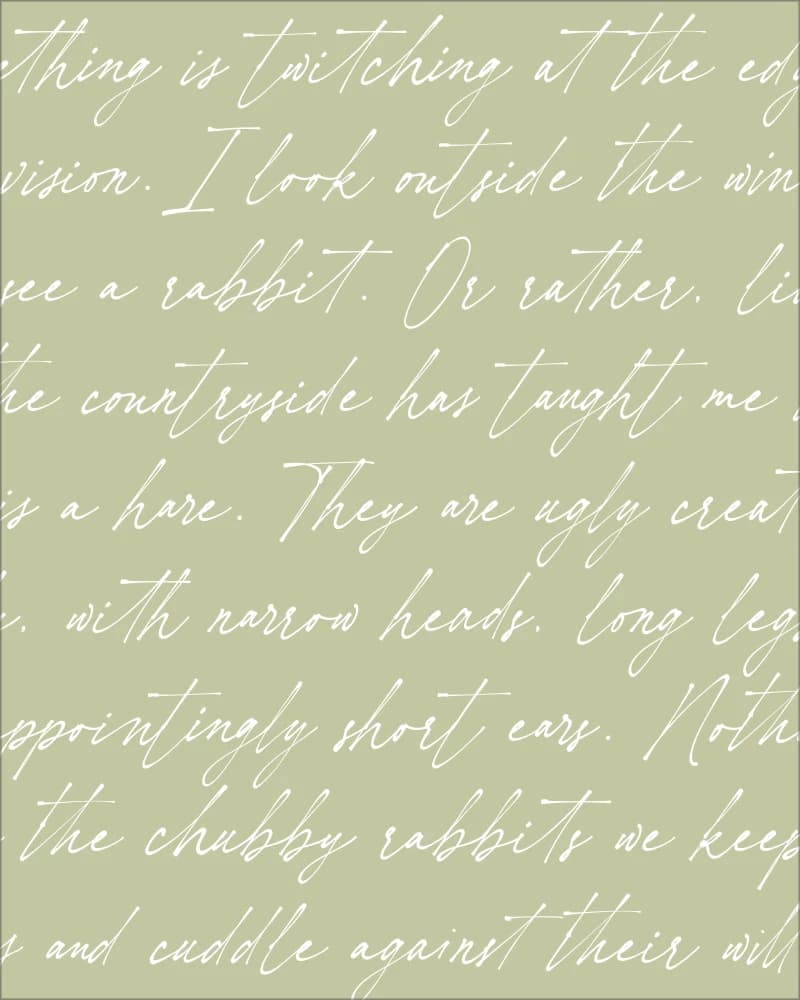 ething is twitching at the edg
vision. I look outside the win
see a rabbit. Or rather, li
he countryside has taught me
is a hare. They are ugly creat
, with narrow heads, long legs
ppointingly short ears. Noth
the chubby rabbits we keep
s and cuddle against their will